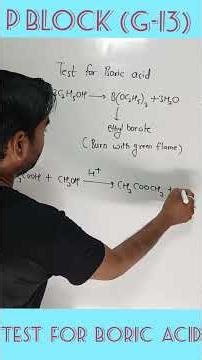 P BLOCK (G-13)
Test for Boric acid
3C₂H₅OH → B(OC₂H₅)₃ + 3H₂O
↓
ethyl borate
(Burn with green flame)
COOH + CH₃OH H⁺→ CH₃COOCH₃ +
TEST FOR BORIC ACID